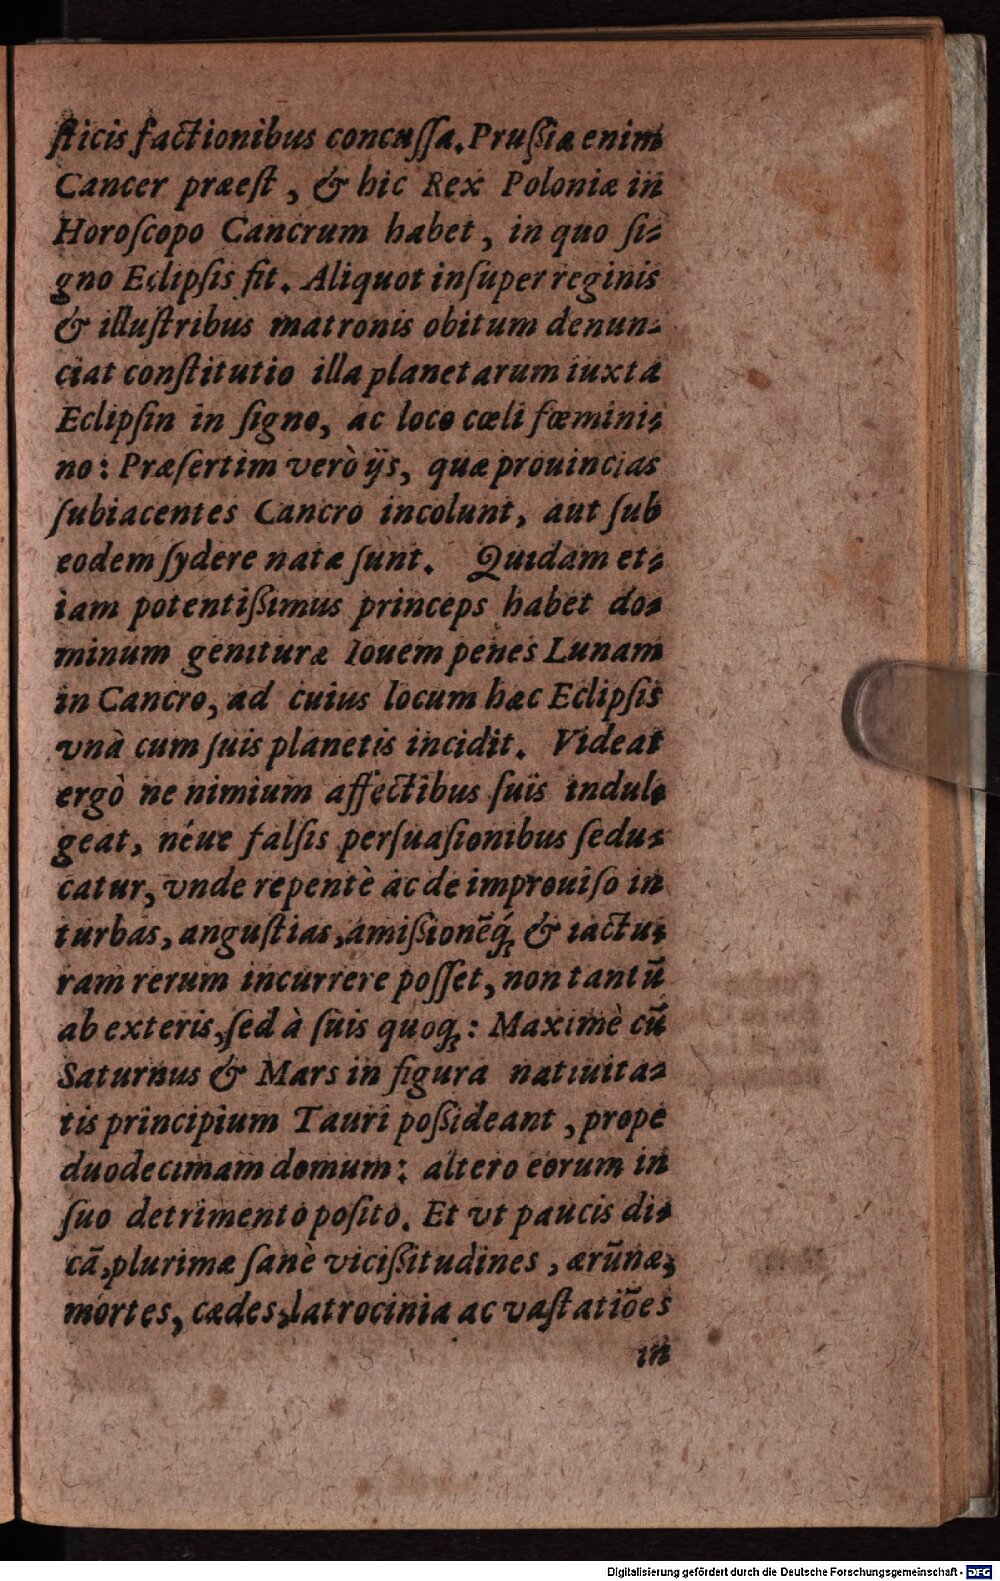 ſticis factionibus concuſſa. Pruſsiæ enim
Cancer præeſt, & hic Rex Poloniæ in
Horoſcopo Cancrum habet, in quo ſi-
gno Eclipſis fit. Aliquot inſuper reginis
& illuſtribus matronis obitum denun-
ciat conſtitutio illa planetarum iuxta
Eclipſin in ſigno, ac loco cœli fœmini-
no: Præſertim verò ijs, quæ prouincias
ſubiacentes Cancro incolunt, aut ſub
eodem ſydere natæ ſunt. Quidam et-
iam potentiſsimus princeps habet do-
minum genituræ Iouem penes Lunam
in Cancro, ad cuius locum hæc Eclipſis
vnà cum ſuis planetis incidit. Videat
ergò ne nimium affectibus ſuis indul-
geat, néue falſis perſuaſionibus ſedu-
catur, vnde repentè ac de improuiſo in
turbas, anguſtias, amiſsionẽq́ & iactu-
ram rerum incurrere poſſet, non tantũ
ab exteris, ſed à ſuis quoq;: Maximè cũ
Saturnus & Mars in figura natiuita-
tis principium Tauri poſsideant, prope
duodecimam domum: altero eorum in
ſuo detrimento poſito. Et vt paucis di-
cã, plurimæ ſanè viciſsitudines, ærũnæ,
mortes, cædes, latrocinia ac vaſtatiões
in
Digitalisierung gefördert durch die Deutsche Forschungsgemeinschaft - DFG